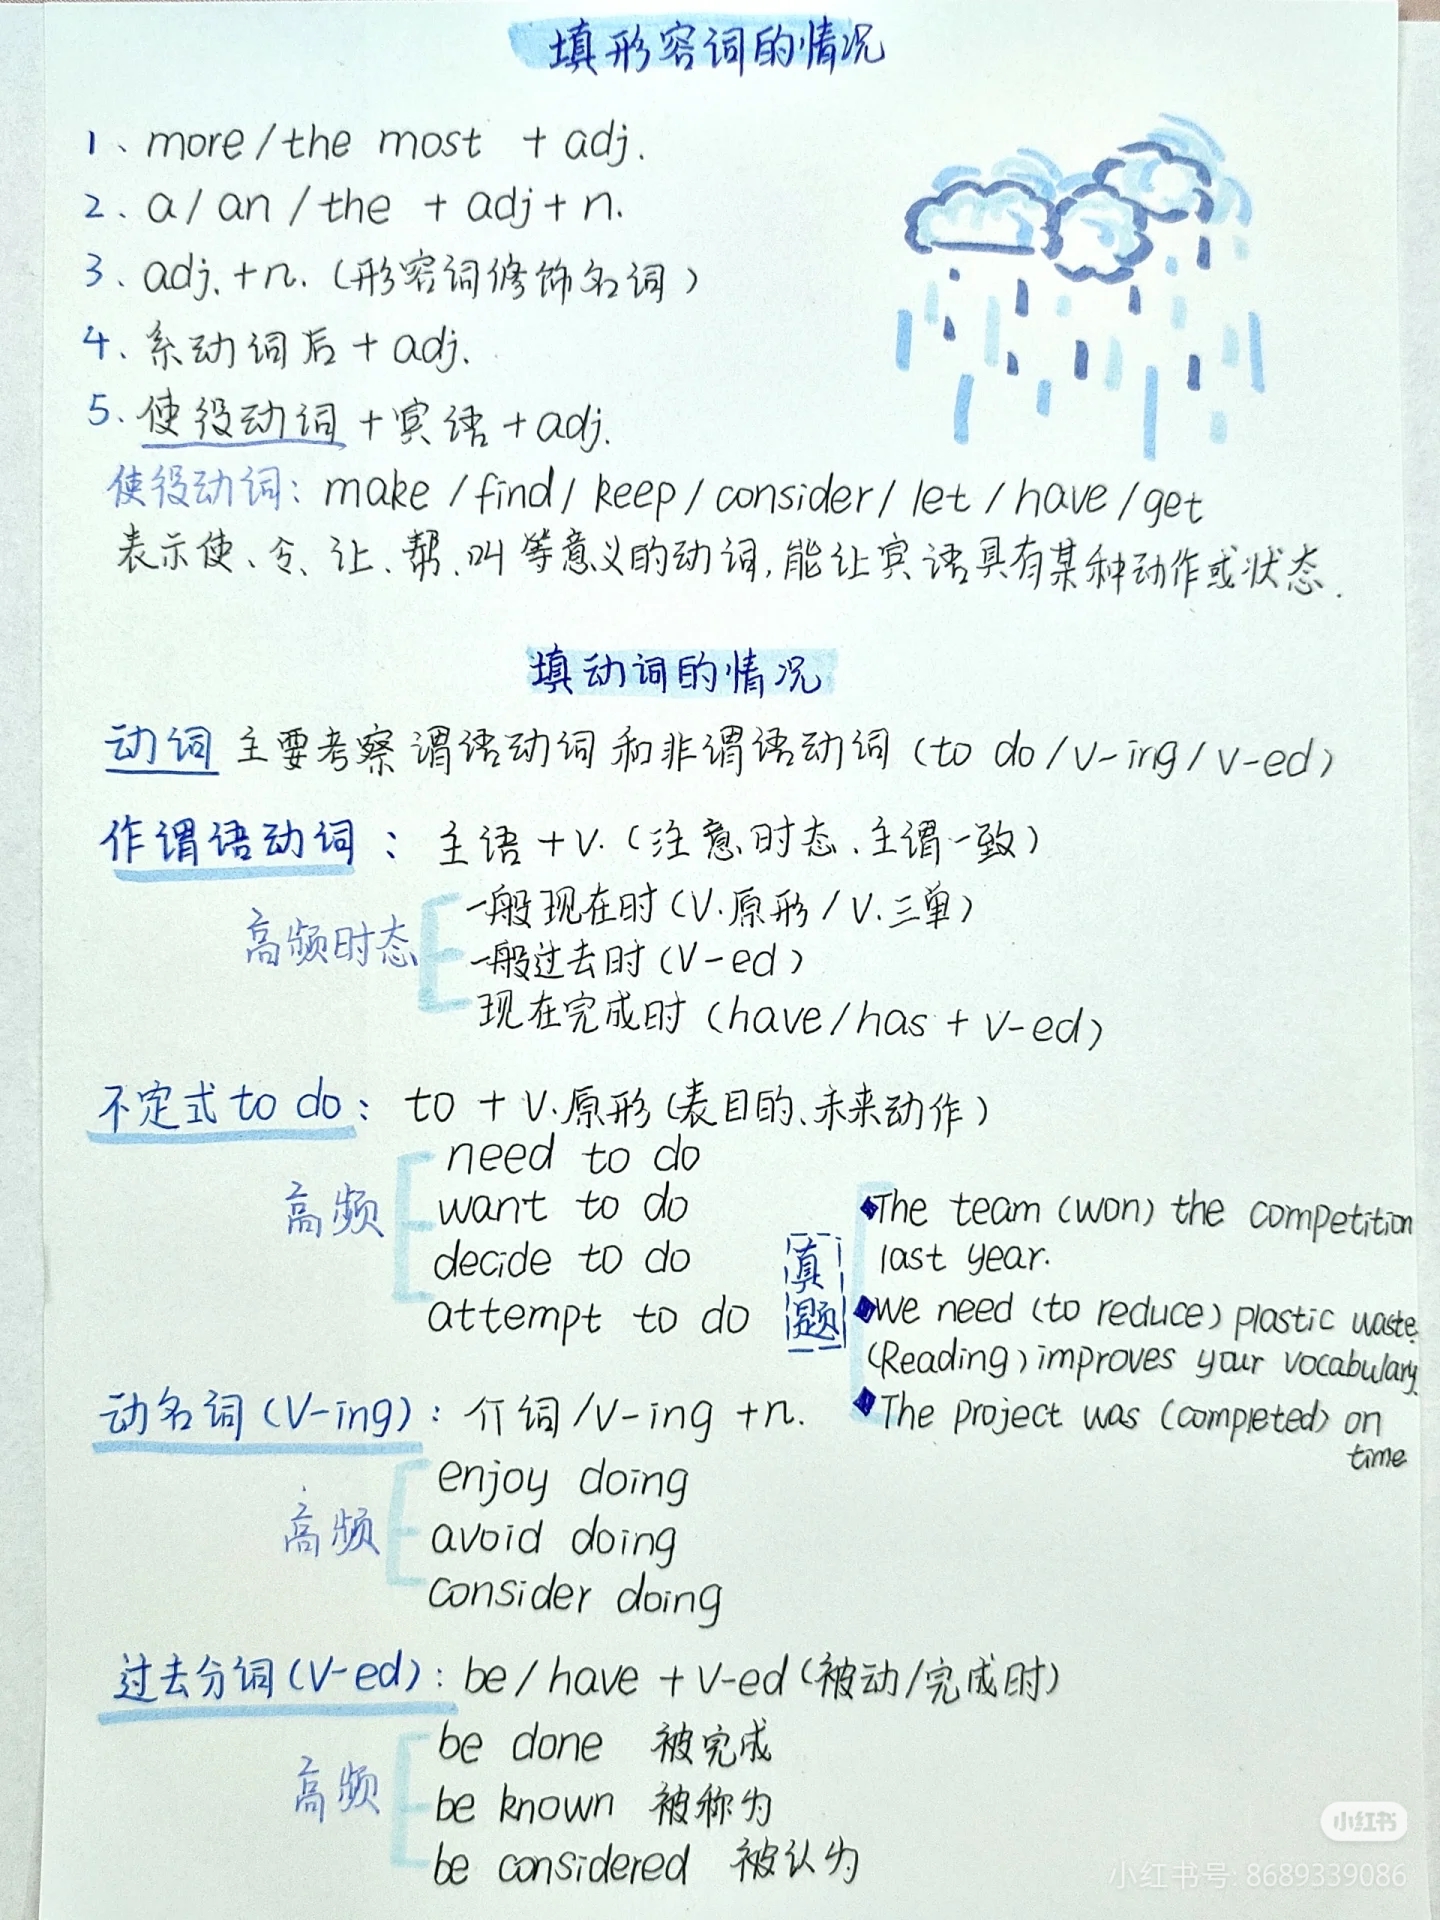 填形容词的情况
1、more/the most + adj.
2、a/an/the + adj+n.
3、adj.+n.(形容词修饰名词)
4、系动词后+adj.
5.使役动词+宾语+adj.
使役动词:make/find/keep/consider/let/have/get
表示使、令、让、帮、叫等意义的动词,能让宾语具有某种动作或状态.
填动词的情况
动词 主要考察谓语动词和非谓语动词(to do/v-ing/v-ed)
作谓语动词: 主语+v.(注意时态、主谓一致)
高频时态
一般现在时(v.原形/v.三单)
一般过去时(v-ed)
现在完成时(have/has + v-ed)
不定式to do: to + v.原形(表目的、未来动作)
高频
need to do
want to do
decide to do
attempt to do
真题
The team (won) the competition
last year.
We need (to reduce) plastic waste.
(Reading) improves your vocabulary.
The project was (completed) on
time
动名词(v-ing): 介词/v-ing +n.
高频
enjoy doing
avoid doing
consider doing
过去分词(v-ed): be/have + v-ed(被动/完成时)
高频
be done 被完成
be known 被称为
be considered 被认为
小红书
小红书号: 8689339086